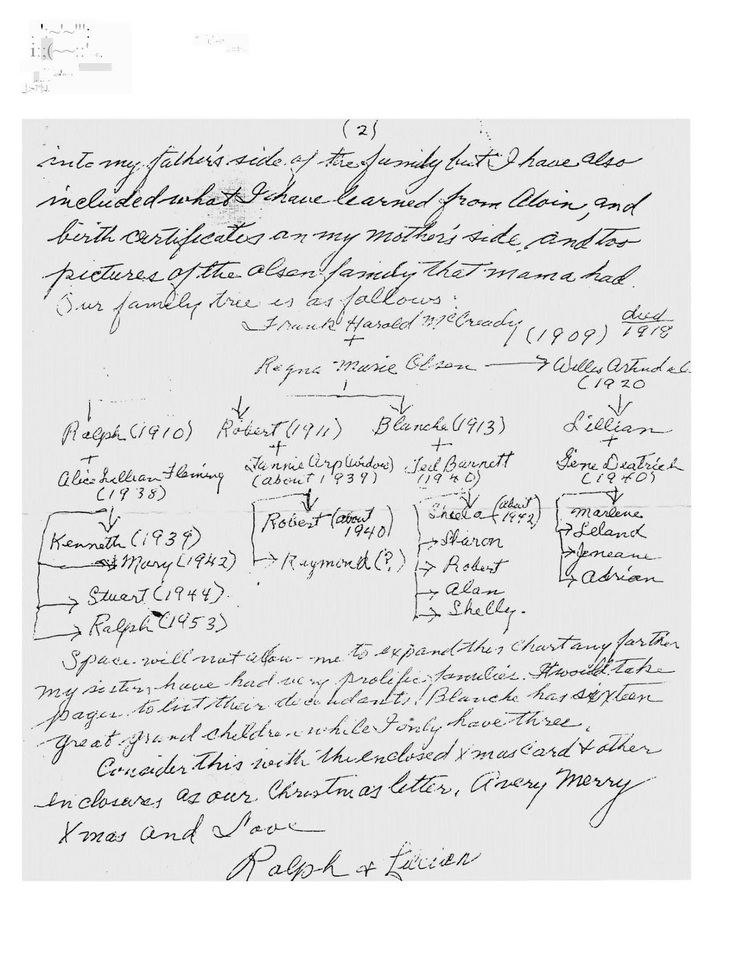 (2)
into my father's side of the family but I have also
included what I have learned from Alvin, and
birth certificates on my mother's side, and too
pictures of the Olsen family that mama had.
Our family tree is as follows:
Frank Harold McCready (1909) died 1918
+
Regna Marie Olsen → Willis
(1920
Ralph (1910) Robert (1911) Blanche (1913) Lillian
+ + + +
Alice Lillian Fleming Fannie Arp (widow) Ted Barnett Gene Deatrich
(1938) (about 1939) (1940) (1940)
Kenneth (1939) Robert (about 1940) Sheela (about 1942) Marlene
Mary (1942) Raymond (?) Sharon Leland
Stuart (1944) Robert Jeneane
Ralph (1953) Alan Adrian
Shelly.
Space will not allow me to expand this chart any farther
my sisters have had very prolific families. It would take
pages to list their decendants! Blanche has sixteen
great grand children while I only have three.
Consider this with the enclosed Xmas card & other
enclosures as our Christmas letter. A very Merry
Xmas and Love
Ralph & Lillian